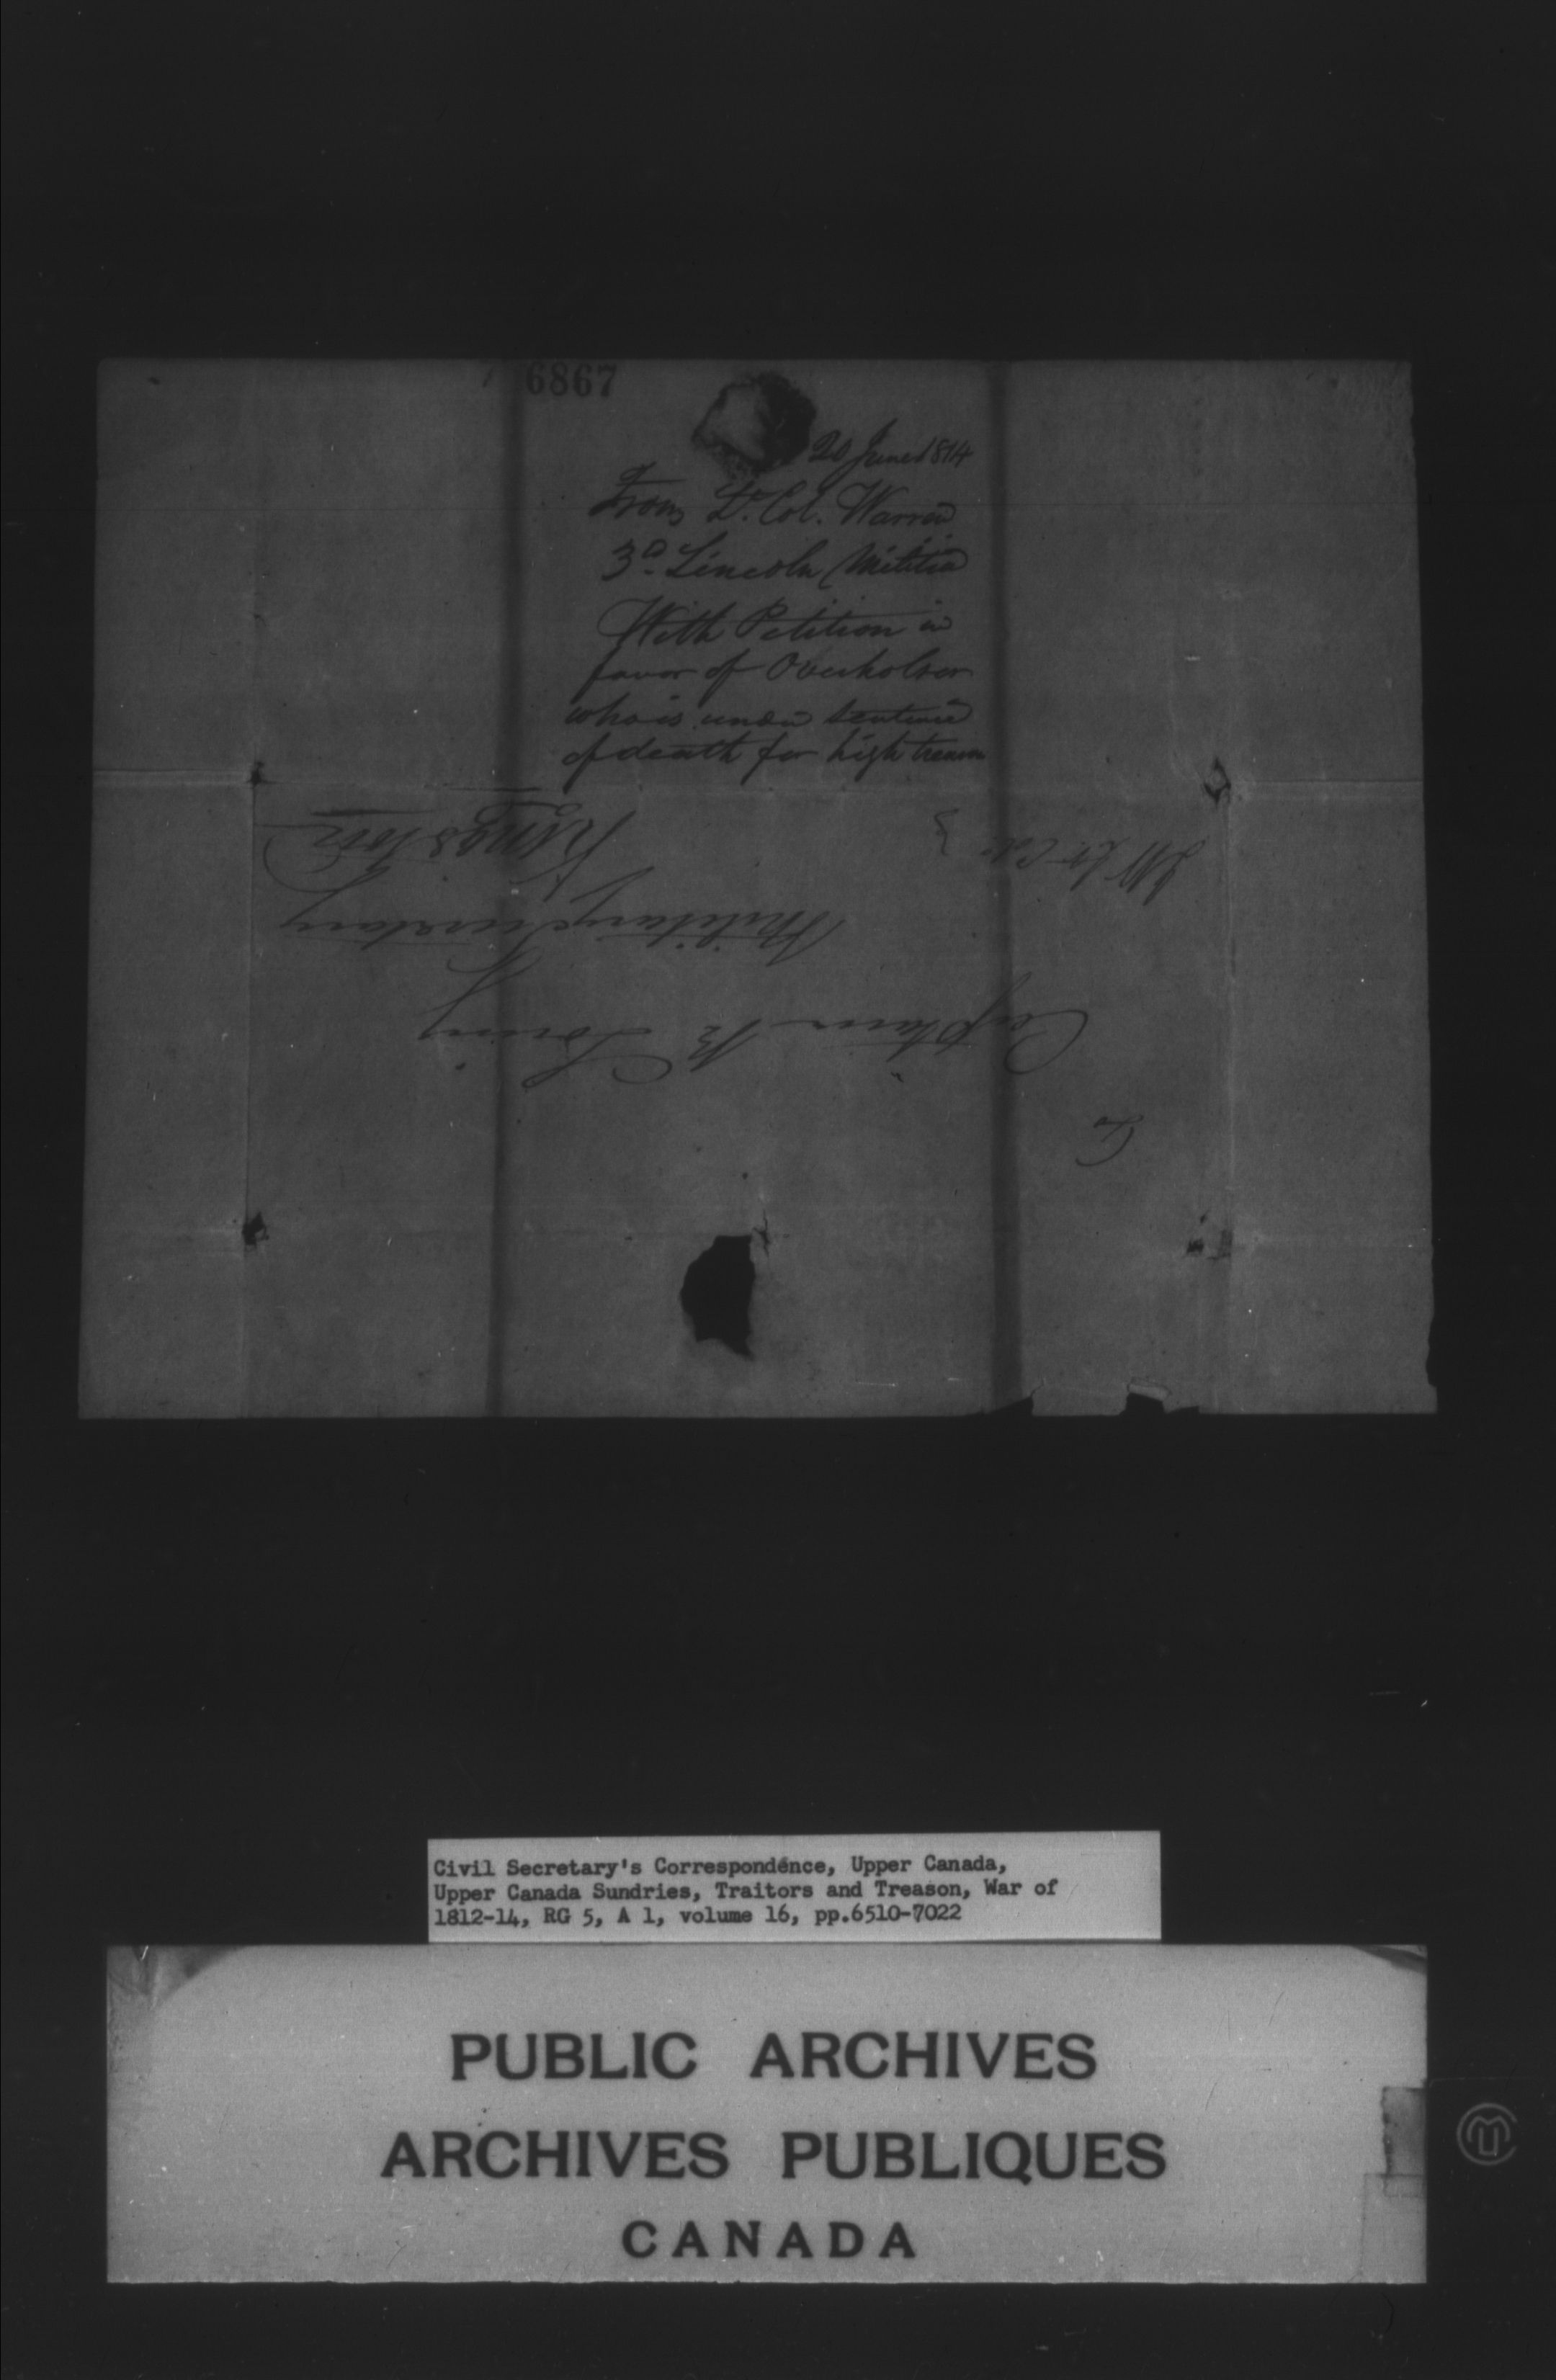 6867
20 June 1814
From Lt. Col. Warren
3d. Lincoln Militia
With Petition in
favor of Overholser
who is under sentence
of death for high treason
To
Captain R Loring
Military Secretary
Kingston
Civil Secretary's Correspondence, Upper Canada,
Upper Canada Sundries, Traitors and Treason, War of
1812-14, RG 5, A 1, volume 16, pp.6510-7022
PUBLIC ARCHIVES
ARCHIVES PUBLIQUES
CANADA